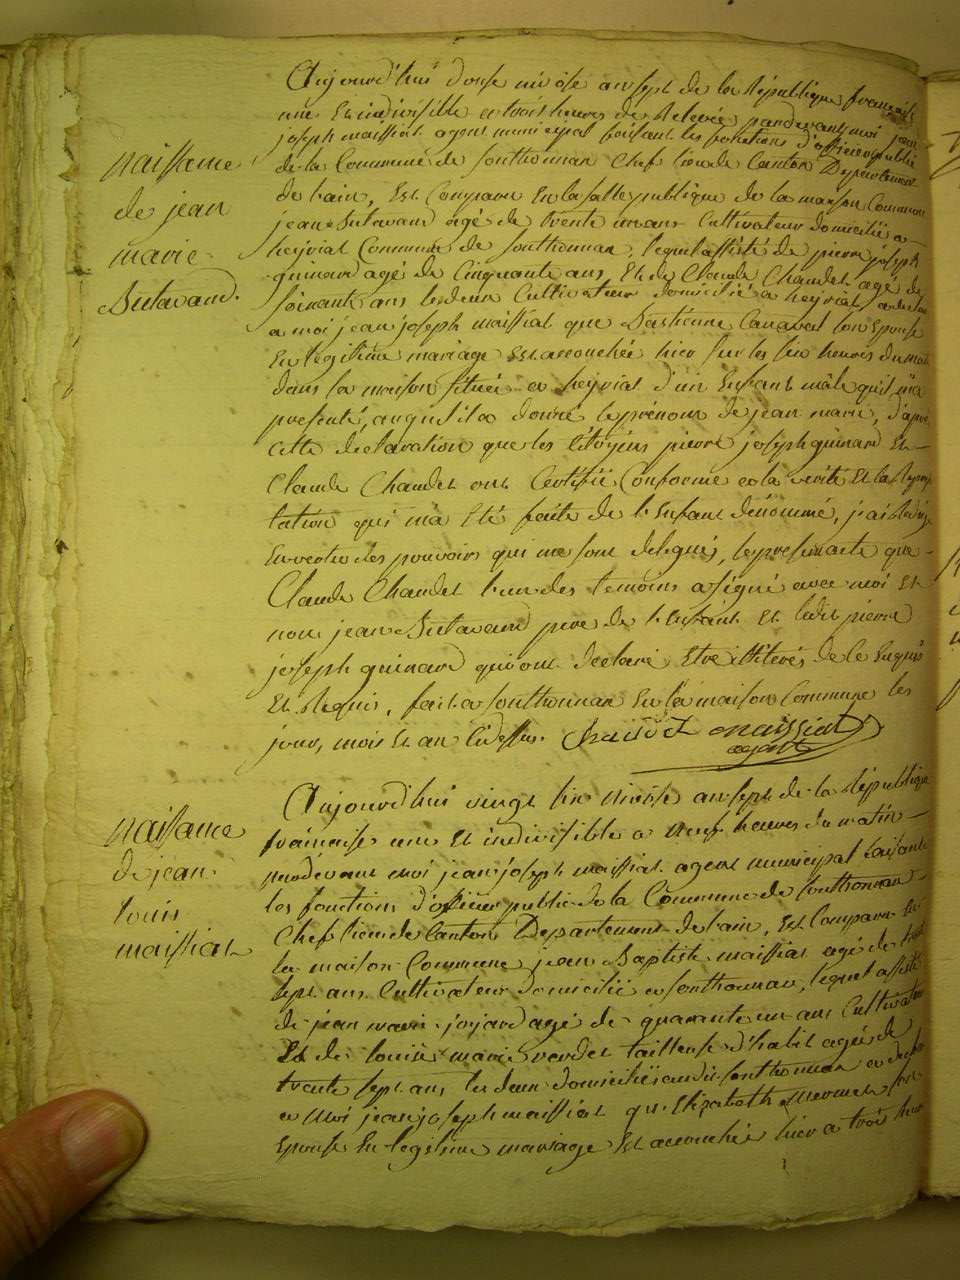 naissance
de jean
marie
Sutavaud.
Aujourd'hui douse nivose an sept de la République française
une et indivisible a trois heures de Relevée pardevant moi jean
joseph maissiat agent municipal faisant les fonctions d'officier public
de la Commune de Sonthonnax Chef lieu de Canton Département
de l'ain, Est Comparu En la salle publique de la maison Commune
jean Sutavaud agé de trente un ans Cultivateur domicilié a
heyriat Commune de Sonthonnax, lequel assisté de pierre joseph
guinard agé de Cinquante ans, Et de Claude Chaudet agé de
soixante ans les deux Cultivateur domicilié a heyriat a declaré
a moi jean joseph maissiat que Bastienne Canavat son Epouse
En légitime mariage Est accouchée hier sur les six heures du matin
dans la maison située a heyriat d'un Enfant mâle qu'il m'a
presenté, auquel il a donné le prénom de jean marie, d'après
cette declaration que les Citoyens pierre joseph guinard Et
Claude Chaudet ont Certifié Conforme a la verité Et la Représen
tation qui m'a Eté faite de l'Enfant dénommé, j'ai Redigé
En vertu des pouvoirs qui me sont delegués, le present acte que
Claude Chaudet l'un des temoins a signé avec moi Et
non jean Sutavaud pere de l'Enfant Et ledit pierre
joseph guinard qui ont declaré Etre illiterés de ce Enquis
Et Requis, fait a Sonthonnax En la maison Commune les
jour, mois Et an Cidessus. Chaudet maissiat
agent
naissance
de jean
louis
maissiat
Aujourd'hui vingt six nivose an sept de la République
française une Et indivisible a neuf heures du matin
pardevant moi jean joseph maissiat agent municipal faisant
les fonctions d'officier public de la Commune de Sonthonnax
Chef lieu de Canton Département de l'ain, Est Comparu En
la maison Commune jean Baptiste maissiat agé de
sept ans Cultivateur domicilié a Sonthonnax, lequel assisté
de jean marie joyard agé de quarante un ans Cultivateur
Et de louise marie verdet tailleuse d'habit agée de
trente sept ans, les deux domiciliés audit Sonthonnax a declaré
a moi jean joseph maissiat qu'Elizabeth mermet son
Epouse En legitime mariage Est accouchée hier a trois heures